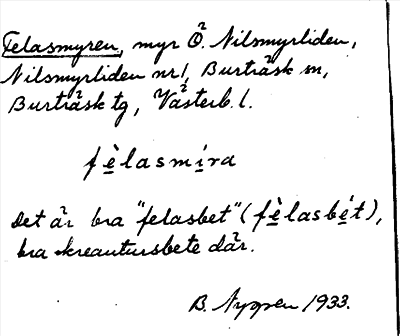 Felasmyren, myr Ö. Nilsmyrliden,
Nilsmyrliden nr 1, Burträsk sn,
Burträsk tg, Västerb. l.
fèlasmi̱ra
Det är bra "felasbet" (fè̱lasbé̱t),
bra kreautursbete där.
B. Nyppen 1933.